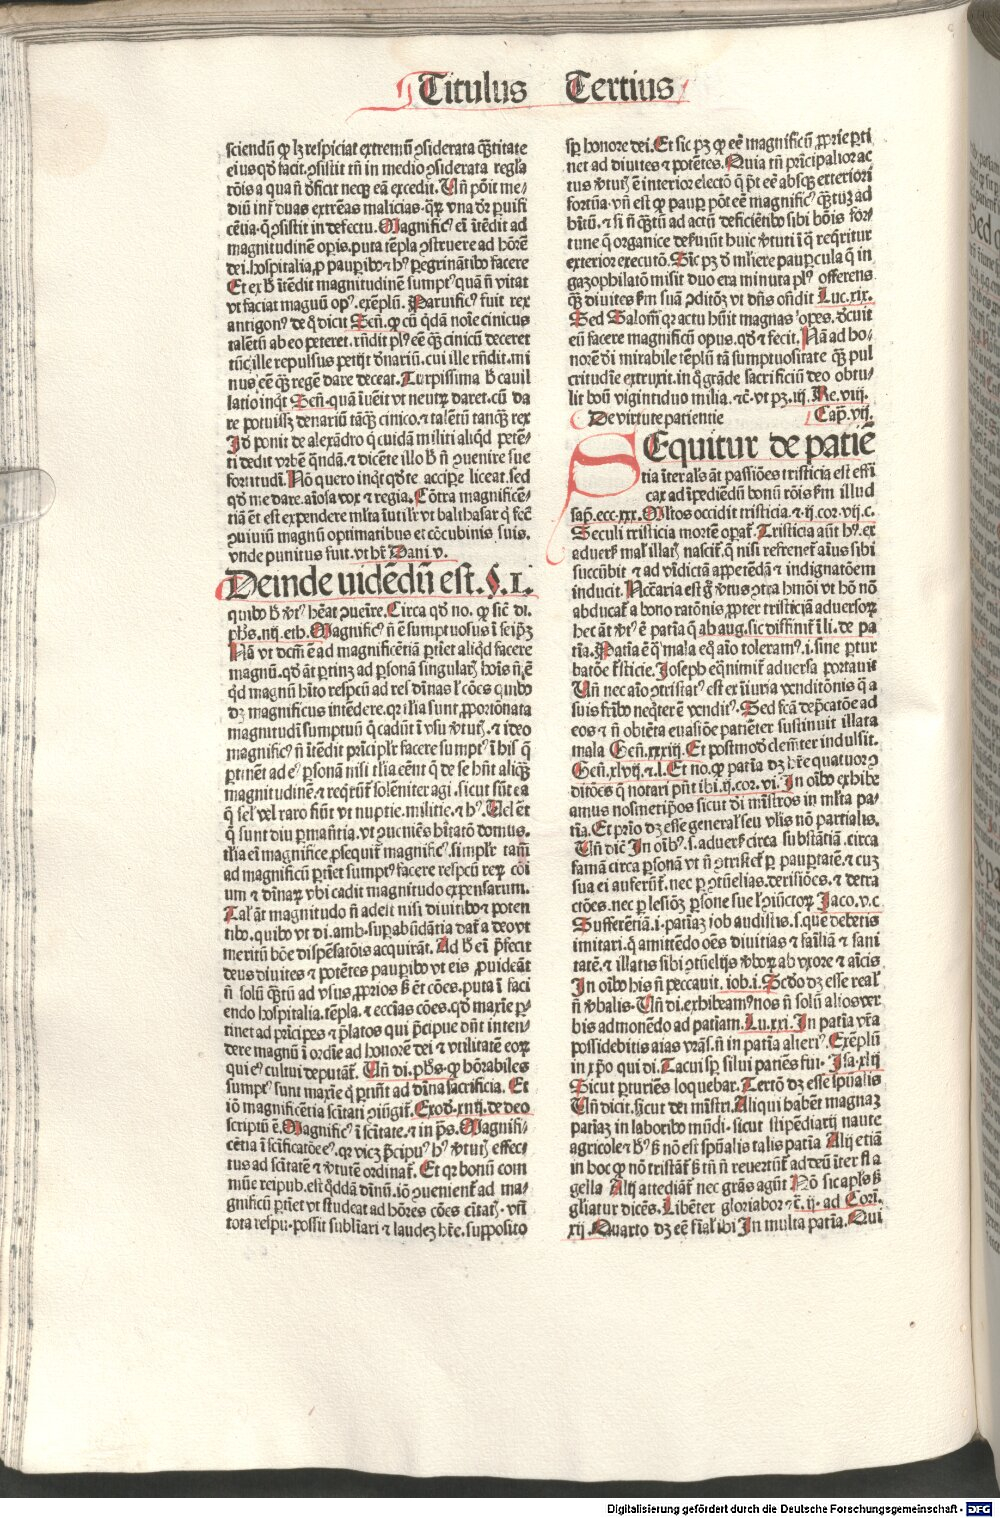 Titulus Tertius
sciendū qꝛ lꝫ respiciat extremū ꝯsiderata q̄titate
ei⁹ qd̄ facit. ꝯsistit tn̄ in medio ꝯsiderata regla
rōis a qua n̄ deficit necꝫ eā excedit. Un̄ pōit me⸗
diū int̄ duas extrēas malicias. qꝝ vna dr̄ paruifi
cētia. q̄ ꝯsistit in defectu. Magnific⁹ ei ītēdit ad
magnitudinē operis. puta tēpla ꝯstruere ad hōrē
dei. hospitalia, p̱ pauꝑibꝰ ⁊ hꝰ ꝑegrinātibꝰ facere
Et ex hͦ ītēdit magnitudinem sumptꝰ quā n̄ vitat
vt faciat magnū opꝰ. exēplū. Paruificꝰ fuit rex
antigonꝰ de q̊ dicit Sen̄. qꝛ cū q̇dā noīe cinicus
talētū ab eo peteret. rn̄dit plꝰ eē qꝫ cinicū deceret
tūc ille repulsus petijt denariū. cui ille rn̄dit. mi
nus eē qꝫ regē dare deceat. Turpissima hͨ cauil
latio inq̇t Sen̄. quā īuēit vt neutꝝ daret. cū da
re potuissꝫ denariū tanqꝫ cinico. ⁊ talētū tanqꝫ rex
Id ponit de alexādro q̇ cuidā militi aliq̇d petē⸗
ti dedit vrbē q̄ndā. ⁊ dicēte illo hͨ n̄ ꝯuenire sue
fortitudī. Nō quero inq̇t qd̄ te accipe liceat. sed
qd̄ me dare. aīosa vox ⁊ regia. Cōtra magnificē⸗
tiā ēt est expendere ml̄ta īutil̄r vt balthasar q̇ fecꝰ
ꝯuiuiū magnū optimatibus et cōcubinis suis.
vnde punitus fuit. vt hr̄ Dani v.
Deinde uidēdū est. §. I.
quibꝰ hͨ v̄tꝰ hēat ꝯueīre. Circa qd̄ no. qꝛ sic̄ di.
phs. iiij. eth. Magnificꝰ n̄ ē sumptuosus ī seip̄ꝫ
Nā vt dcm̄ ē ad magnificētiā ꝑtīet aliq̇d facere
magnū. qd̄ āt ꝑtinꝫ ad ꝑsonā singularē hoīs n̄ ē
q̇d magnū hīto respcū ad res dīnas ł cōes quibꝰ
dꝫ magnificus intēdere. qꝛ illa sunt, p̱portōnata
magnitudī sumptuū q̇ cadūt ī vsu v̄tutꝭ. ⁊ ideo
magnificꝰ n̄ ītēdit prīcipl̄r facere sumptꝰ ī his q̄
ꝑtinēt ad eꝰ ꝑsonā nisi tlīa eēnt q̇ de se hn̄t aliqꝫ
magnitudinē. ⁊ reqrūt solēniter agi. sicut sūt ea
q̄ sel̄ vel raro fiūt vt nuptie. militie. ⁊ hꝰ. Uel ēt
q̄ sunt diu ꝑmāsītia. vt ꝯueniēs hītatō domus.
tlīa ei magnifice, p̱sequit̄ magnificꝰ. simplr̄ tam̄
ad magnificum ꝑtiet sumptꝰ facere respcū reꝝ cōi
um ⁊ dīnaꝝ vbi cadit magnitudo expensarum.
Tal̄ āt magnitudo n̄ adest nisi diuitibꝰ ⁊ poten
tibꝰ. quibꝰ vt di. amb. suꝑabūdātia dat̄ a deo vt
meritū bōe dispēsatōis acquirāt. Ad hͨ ei p̄fecit
deus diuites ⁊ potētes pauꝑibꝰ vt eis, p̱uideāt
n̄ solū q̄ztū ad vsus, p̱prios ß ēt cōes. puta ī faci
endo hospitalia. tēpla. ⁊ eccīas cōes. qd̄ maxīe ꝑ⸗
tinet ad prīcipes ⁊ p̄latos qui p̄cipue dn̄t inten⸗
dere magnū ī ordīe ad honorē dei ⁊ vtilitatē eoꝝ
qui eꝰ cultui deputāt̄. Un̄ di. phs. qꝛ hōrabiles
sumptꝰ sunt maxīe q̇ ꝑtinēt ad dīna sacrificia. Et
iō magnificētia sc̄itati ꝯiūgit̄. Exoď. xxiij. de deo
scriptū ē. Magnificꝰ ī sc̄itate. ⁊ in ps̄. Magnifi⸗
cētia ī sc̄ificatōe eꝰ. qꝛ vicꝫ p̄cipuꝰ hꝰ v̄tutꝭ effec⸗
tus ad sc̄itatē ⁊ v̄tutē ordinat̄. Et qꝛ bonū com
mūe reipub. est q̇ddā dīnū. iō ꝯuenient̄ ad ma⸗
gnificū ꝑtiet vt studeat ad hōres cōes cītatꝭ. vn̄
tota respu. possit subliari ⁊ laudeꝫ hr̄e. supposito
sꝑ honore dei. Et sic pꝫ qꝛ eē magnificū, p̱prīe ꝑti
net ad diuites ⁊ potētes. Quia tn̄ prīcipalior ac⸗
tus v̄tutꝭ ē interior electō q̄ pt̄ eē absqꝫ exteriori
fortūa. vn̄ est qꝛ pauꝑ pōt eē magnificꝰ q̄ztuꝫ ad
hītū. ⁊ si n̄ q̄ztū ad actū deficiētibꝰ sibi bōis for⸗
tune q̄ organice deseruiūt huic v̄tuti ī q̄ req̇ritur
exterior executō. Sic pꝫ de mliere pauꝑcula q̄ in
gazophilatō misit duo era minuta plꝰ offerens
qꝫ diuites ẜm suā ꝯditōꝫ vt dn̄s oñdit Luc. xix.
Sed Salom̄ qꝛ actu hūit magnas opes. decuit
eū facere magnificū opus. qd̄ ⁊ fecit. Nā ad ho⸗
norē di mirabile tēplū tā sumptuositate qꝫ pul
critudīe extruxit. in q̊ grāde sacrificiū deo obtu⸗
lit boū vigintiduo milia. ⁊c̄. vt pꝫ. iij. Re. viij.
De virtute patientie Cap̄. vij.
SEquitur de patiē
tia īter als āt passiōes tristicia est effi
cax ad īpediēdū bonū rōis ẜm illud
sap̄. ecc. xxx. Mltos occidit tristicia. ⁊. ij. cor. vij. c.
Seculi tristicia mortē operat̄. Tristicia aūt hꝰ. ex
aduerẜ mal̄ illatꝭ nascit̄. q̄ nisi refrenet̄ aīus sibi
succūbit ⁊ ad vīdictā appetēdā ⁊ indignatōem
inducit. Nccāria est gͦ v̄tus ꝯtra hmōi vt hō nō
abducat̄ a bono ratōnis, p̱pter tristiciā aduersoꝝ
hec āt v̄tꝰ ē patīa q̄ ab aug. sic diffinit̄ ī li. de pa
tīa. Patīa ē q̄ mala eq̄ aīo toleramꝰ. i. sine ꝑtur
batōe tristicie. Joseph eq̄nimit̄ aduersa portauit
Un̄ nec aīo ꝯtristatꝰ est ex īiuria venditōnis q̄ a
suis frībꝰ neq̇ter ē venditꝰ. Sed fcā dep̄catōe ad
eos ⁊ n̄ obtēta euasiōe patiēter sustinuit illata
mala Gen̄. xxxvij. Et postmoď clemt̄er indulsit.
Gen̄. xlvij. ⁊. l. Et no. qꝛ patīa dꝫ hr̄e quatuor ꝯ
ditōes q̄ notari pn̄t ibi. ij. cor. vi. In oībꝰ exhibe
amus nosmetip̄os sicut di mīstros in ml̄ta pa⸗
tīa. Et prīo dꝫ esse general̄ seu vlīs nō partialis.
Un̄ dic̄ In oībꝰ. s. aduerẜ circa substātiā. circa
famā circa ꝑsonā vt n̄ ꝯtristet̄ ꝑ pauꝑtatē. ⁊ cuꝫ
sua ei auferūt̄. nec ꝑ ꝯtūelias. derisiōes. ⁊ detra
ctōes. nec ꝑ lesiōꝫ ꝑsone sue ł ꝯiūctoꝝ Jaco. v. c
Sufferētiā. i. patiaꝫ iob audistis. s. que debetis
imitari. q̇ amittēdo oēs diuitias ⁊ fāiliā ⁊ sani
tatē. ⁊ illatis sibi ꝯtūelijs v̄boꝝ ab vxore ⁊ aīcis
In oībꝰ his n̄ peccauit. iob. i. Scďo dꝫ esse real̄
n̄ v̄balis. Un̄ di. exhibeamꝰ nos n̄ solū alios ver
bis admonēdo ad patīam. Lu. xxi. In patīa vr̄a
possidebitis aīas vrās. n̄ in patīa alteriꝰ. Exēplū
in xp̄o qui di. Tacui sꝑ silui patiēs fui. Isa. xlij
Sicut ꝑturiēs loquebar. Tertō dꝫ esse spūalis
Un̄ dicit. sicut dei mīstri. Aliqui habēt magnaꝫ
patīaꝫ in laboribꝰ mūdi. sicut stipēdiarij naute
agricole ⁊ hꝰ ß nō est spūalis talis patīa Alij etiā
in hoc qꝛ nō tristāt̄ ß tn̄ n̄ reuertūt̄ ad deū īter fla
gella Alij attediāt̄ nec grās agūt Nō sic apls ß
glīatur dicēs. Libēter gloriabor ⁊c̄. ij. ad Corī.
xij. Quarto dꝫ eē fīal̄ ibi In multa patīa. Qui
Digitalisierung gefördert durch die Deutsche Forschungsgemeinschaft - DFG